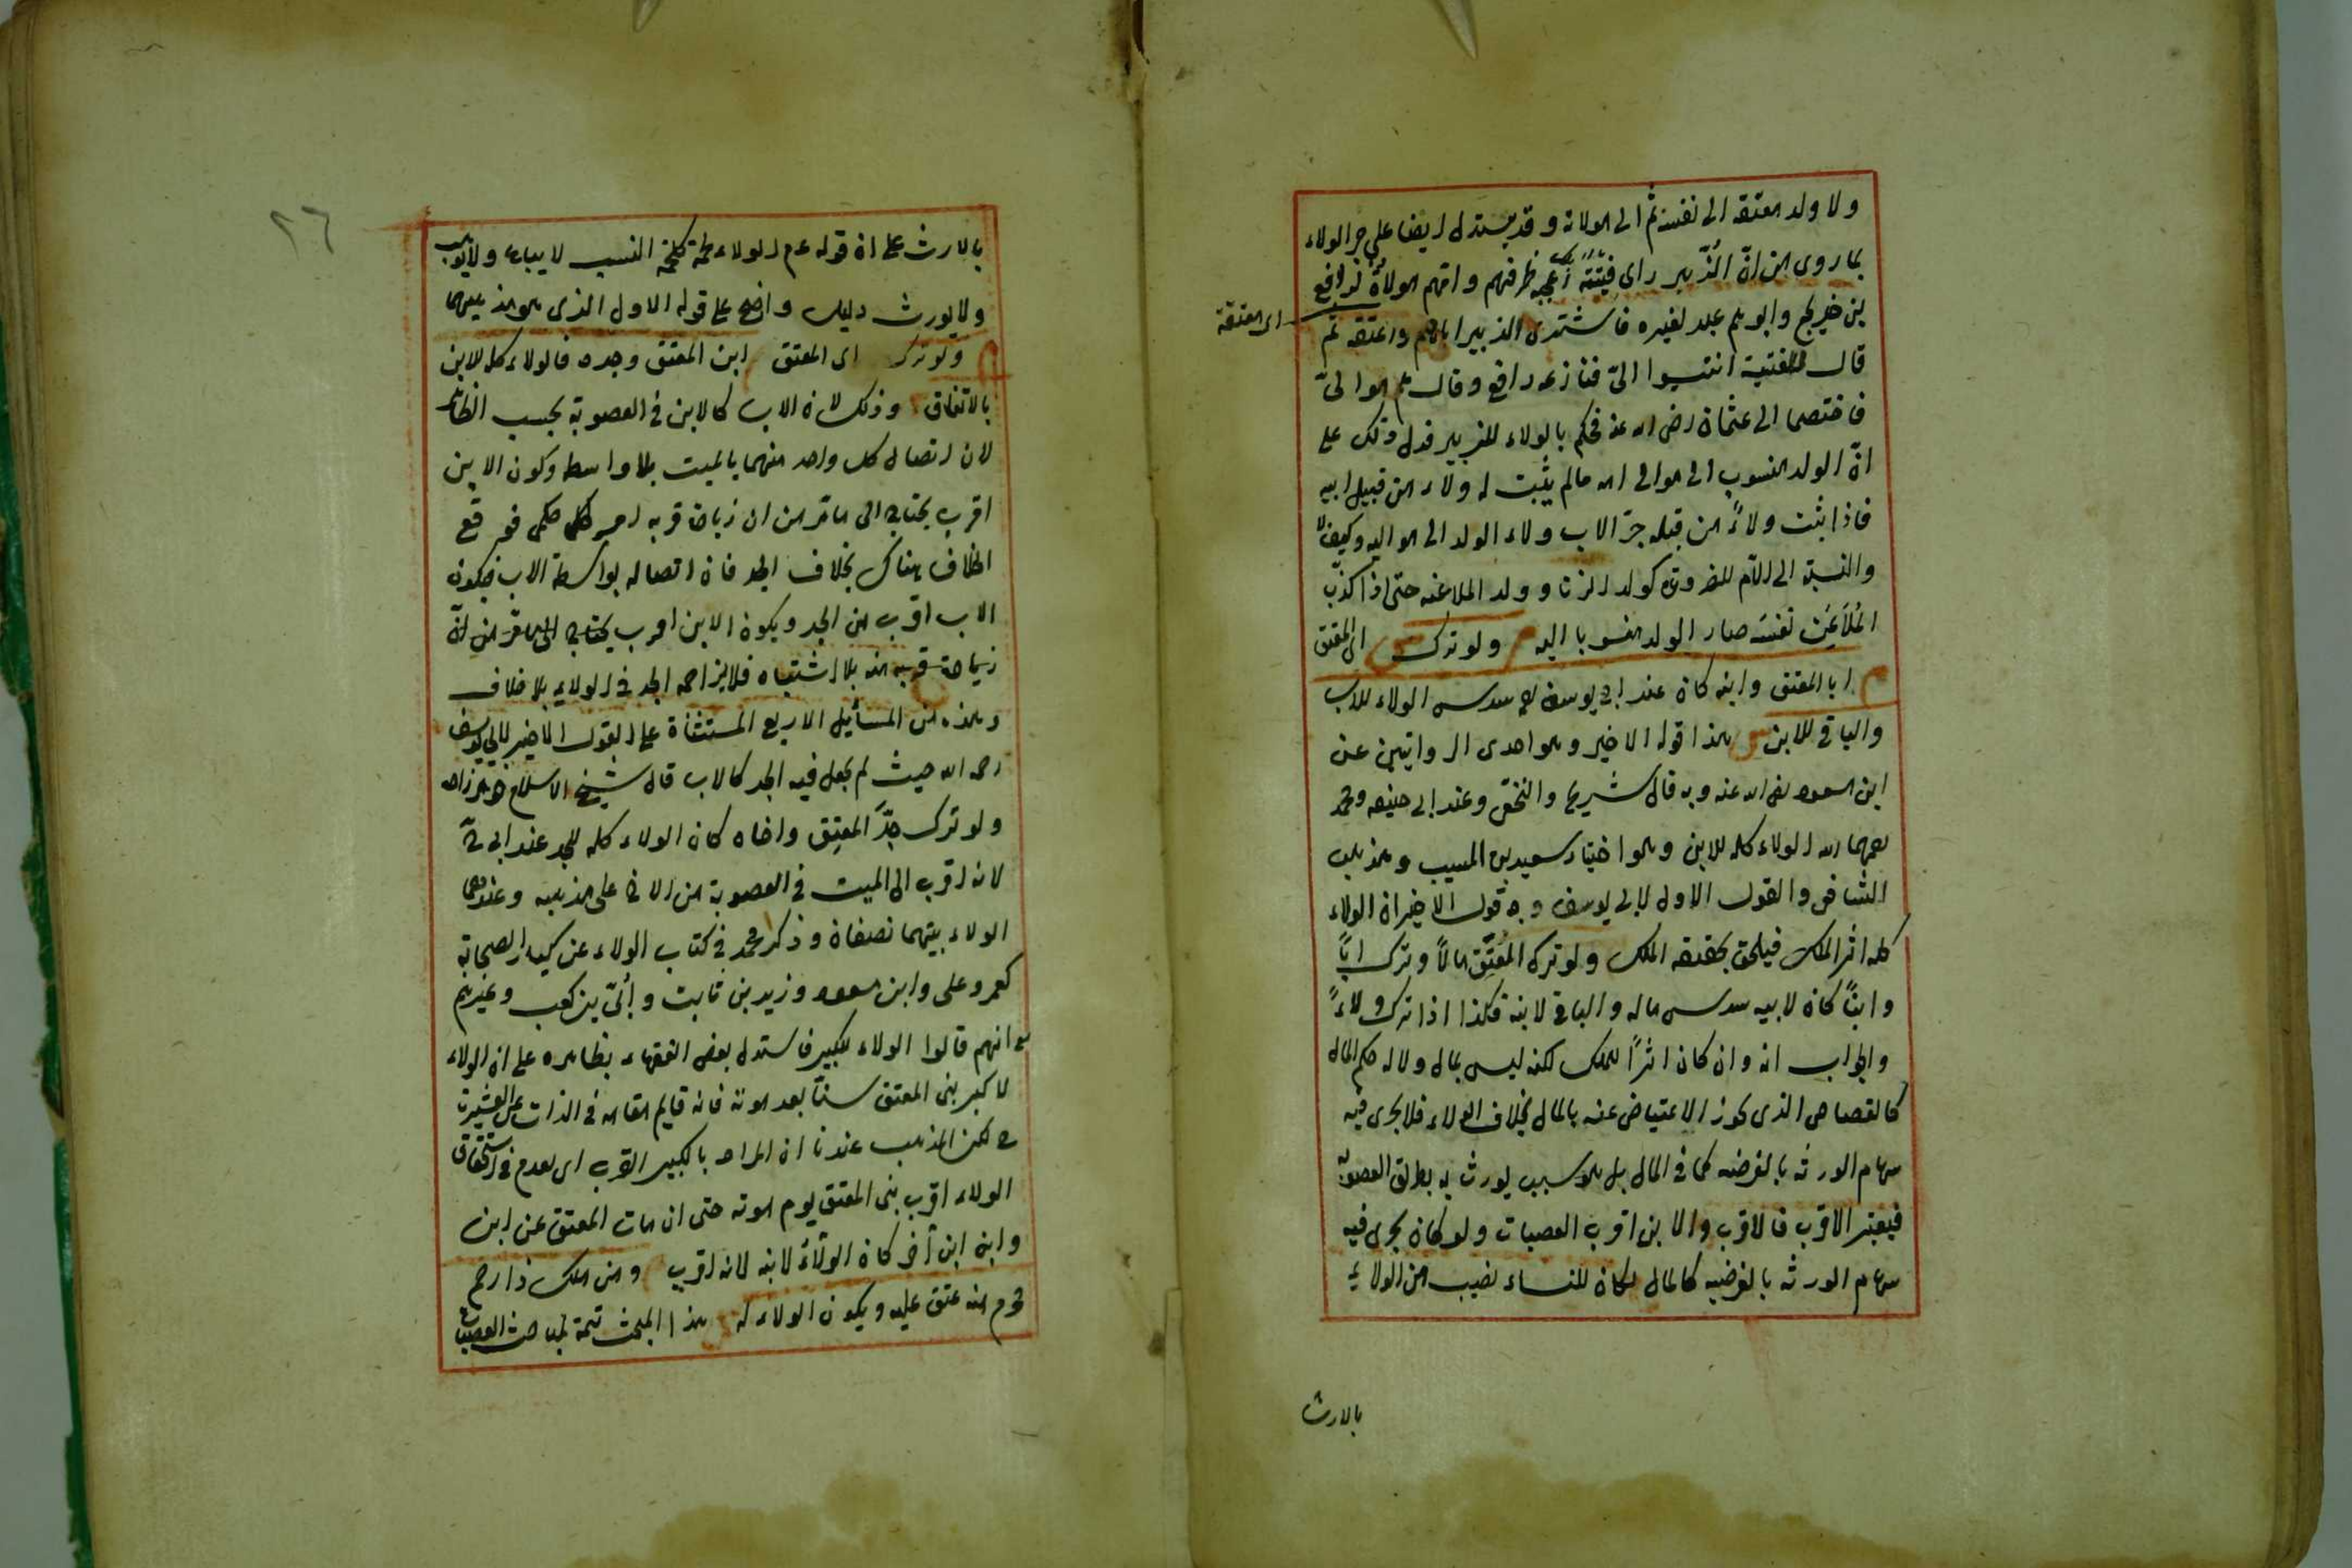 ولا ولد معتقه الى نفسه ثم الى مولاته وقد يستدل ايضا على جر الولاء
بما روى من انّ الزّبير راى فتيةً اعجبه ظرفهم وامّهم مولاةٌ لرافع
اى معتقة
بن خديج وابوهم عبد لغيره فاشترى الزبير اباهم واعتقه ثم
قال للفتية انتسبوا الىّ فنازعه رافع وقال هم موالىّ
فاختصما الى عثمان رضى الله عنه فحكم بالولاء للزبير فدل ذلك على
انّ الولد منسوب الى موالى امه مالم يثبت له ولاء من قبيل ابيه
فاذا ثبت ولاءً من قبله جرّ الاب ولاء الولد الى مواليه وكيف لا
والنسبة الى الام للضرورة كولد الزنا وولد الملاعنه حتى اذا كذّب
المُلاَعِن نفسَه صار الولد منسوبا اليه م ولو ترك س اى المعتق
م ابا المعتق وابنه كان عند ابى يوسف رح سدس الولاء للاب
والباقى للابن س هذا قوله الاخير وهو احدى الروايتين عن
ابن مسعود رضى الله عنه وبه قال شريح والنخعى وعند ابى حنيفه ومحمد
رحمهما الله الولاء كله للابن وهو اختيار سعيد بن المسيب ومذهب
الشافعى والقول الاول لابى يوسف وجه قوله الاخير ان الولاء
كله اثر الملك فيلحق بحقيقة الملك ولو ترك المُعتَق مالاً وترك اباً
وابناً كان لابيه سدس ماله والباقى لابنه فكذا اذا ترك ولاءً
والجواب انه وان كان اثراً للملك لكنه ليس بمال ولا له حكم المال
كالقصاص الذى يجوز الاعتياض عنه بالمال بخلاف الولاء فلا يجرى فيه
سهام الورثه بالفرضيه كما فى المال بل هو سبب يورث به بطريق العصوبة
فيعتبر الاقرب فالاقرب والابن اقرب العصبات ولو كان يجرى فيه
سهام الورثه بالفرضيه كالمال لكان للنساء نصيب من الولاء
بالارث
٢٦
بالارث على ان قوله عم الولاء لحمة كلحمة النسب لا يباع ولا يوهب
ولا يورث دليل واضح على قوله الاول الذى هو مذهبهما
م ولو ترك اى المعتق ابن المعتق وجده فالولاء كله للابن
بالاتفاق وذلك لان الاب كالابن فى العصوبة بحسب الظاهر
لان اتصال كل واحد منهما بالميت بلا واسطه وكون الابن
اقرب يحتاج الى مامّر من ان زيادة قربه امر حكمى فوقع
الخلاف هناك بخلاف الجد فان اتصاله بواسطة الاب فيكون
الاب اقرب من الجد ويكون الابن اقرب يحتاج الى مامرّ من انّ
زيادة قربه منه بلا اشتباه فلا يزاحمه الجد فى الولاء بلا خلاف
وهذه من المسأيل الاربع المستثناة على القول الاخير لابى يوسف
رحمه الله حيث لم يجعل فيه الجد كالاب قال شيخ الاسلام خواهر زاده
ولو ترك جدَّ المعتِق واخاه كان الولاء كله للجد عند ابى ح
لانه اقرب الى الميت فى العصوبة من الاخ على مذهبه وعندهما
الولاء بينهما نصفان وذكر محمد فى كتاب الولاء عن كبار الصحابة
كعمر وعلى وابن مسعود وزيد بن ثابت وأبىّ بن كعب وغيرهم
رض انهم قالوا الولاء للكبير فاستدل بعض الفقهاء بظاهره على ان الولاء
لاكبر بنى المعتق سنّاً بعد موته فانه قايم مقامه فى الذات عن العشيرة
لكن المذهب عندنا ان المراد بالكبير القرب اى يقدم فى استحقاق
الولاء اقرب بنى المعتق يوم موته حتى ان مات المعتق عن ابن
وابن ابن أخر كان الولاءُ لابنه لانه اقرب ومن ملك ذا رحم
محرم منه عتق عليه ويكون الولاء له هذا المبحث تتمة لمباحث العصبات